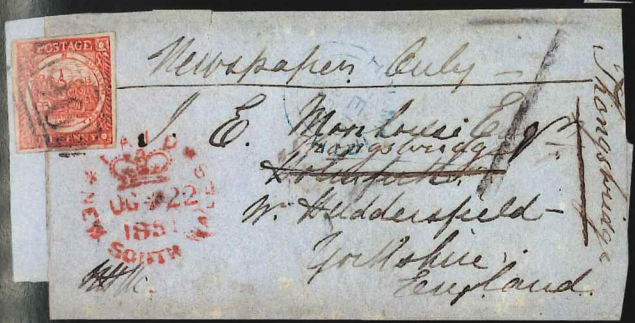 POSTAGE
PENNY
Newspaper Only —
J. E. Moorhouse Esqr
Thongsbridge
Nr. Huddersfield —
Yorkshire
England.
Thongsbridge
PAID
OC 22
1851
NEW SOUTH WALES